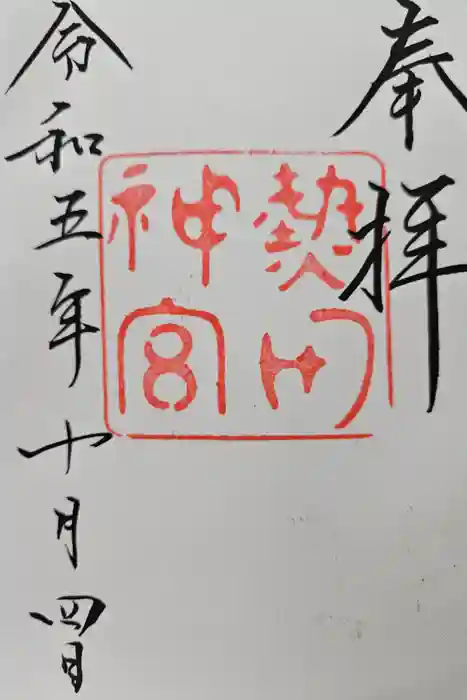 奉拝
熱田
神宮
令和五年十月四日